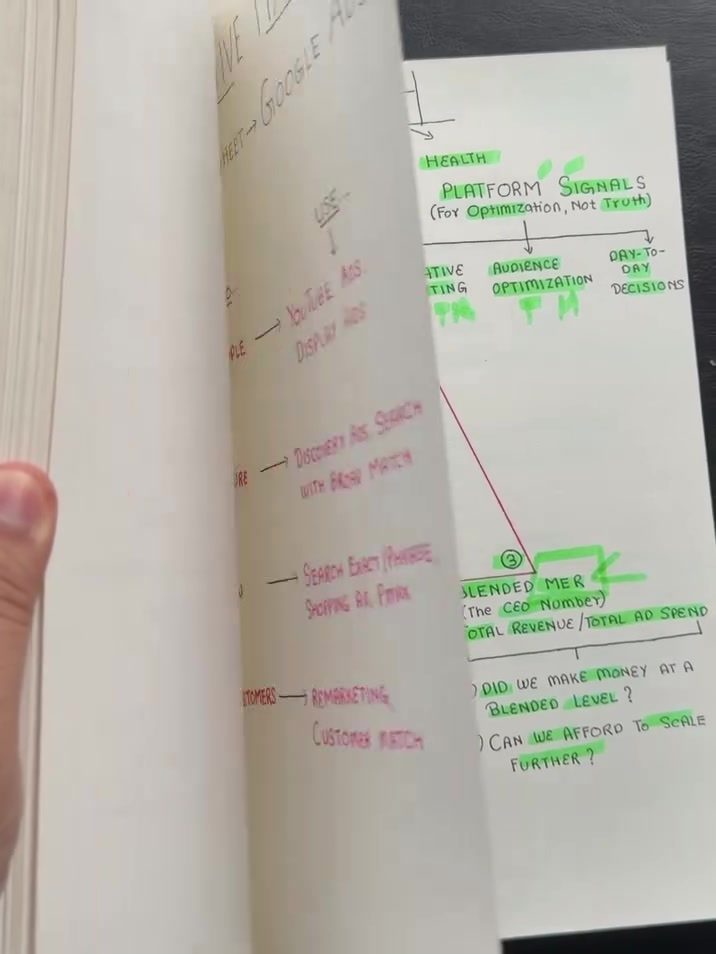 GOOGLE ADS
USE
YOUTUBE ADS
DISPLAY ADS
DISCOVERY ADS, SEARCH
WITH BROAD MATCH
SEARCH EXACT/PHRASE
SHOPPING
TOMERS → REMARKETING
CUSTOMER MATCH
HEALTH
PLATFORM SIGNALS
(FOR OPTIMIZATION, NOT TRUTH)
ATIVE
TING
AUDIENCE
OPTIMIZATION
DAY-TO-
DAY
DECISIONS
③
BLENDED MER
(THE CEO NUMBER)
OTAL REVENUE/TOTAL AD SPEND
) DID WE MAKE MONEY AT A
BLENDED LEVEL?
) CAN WE AFFORD TO SCALE
FURTHER?